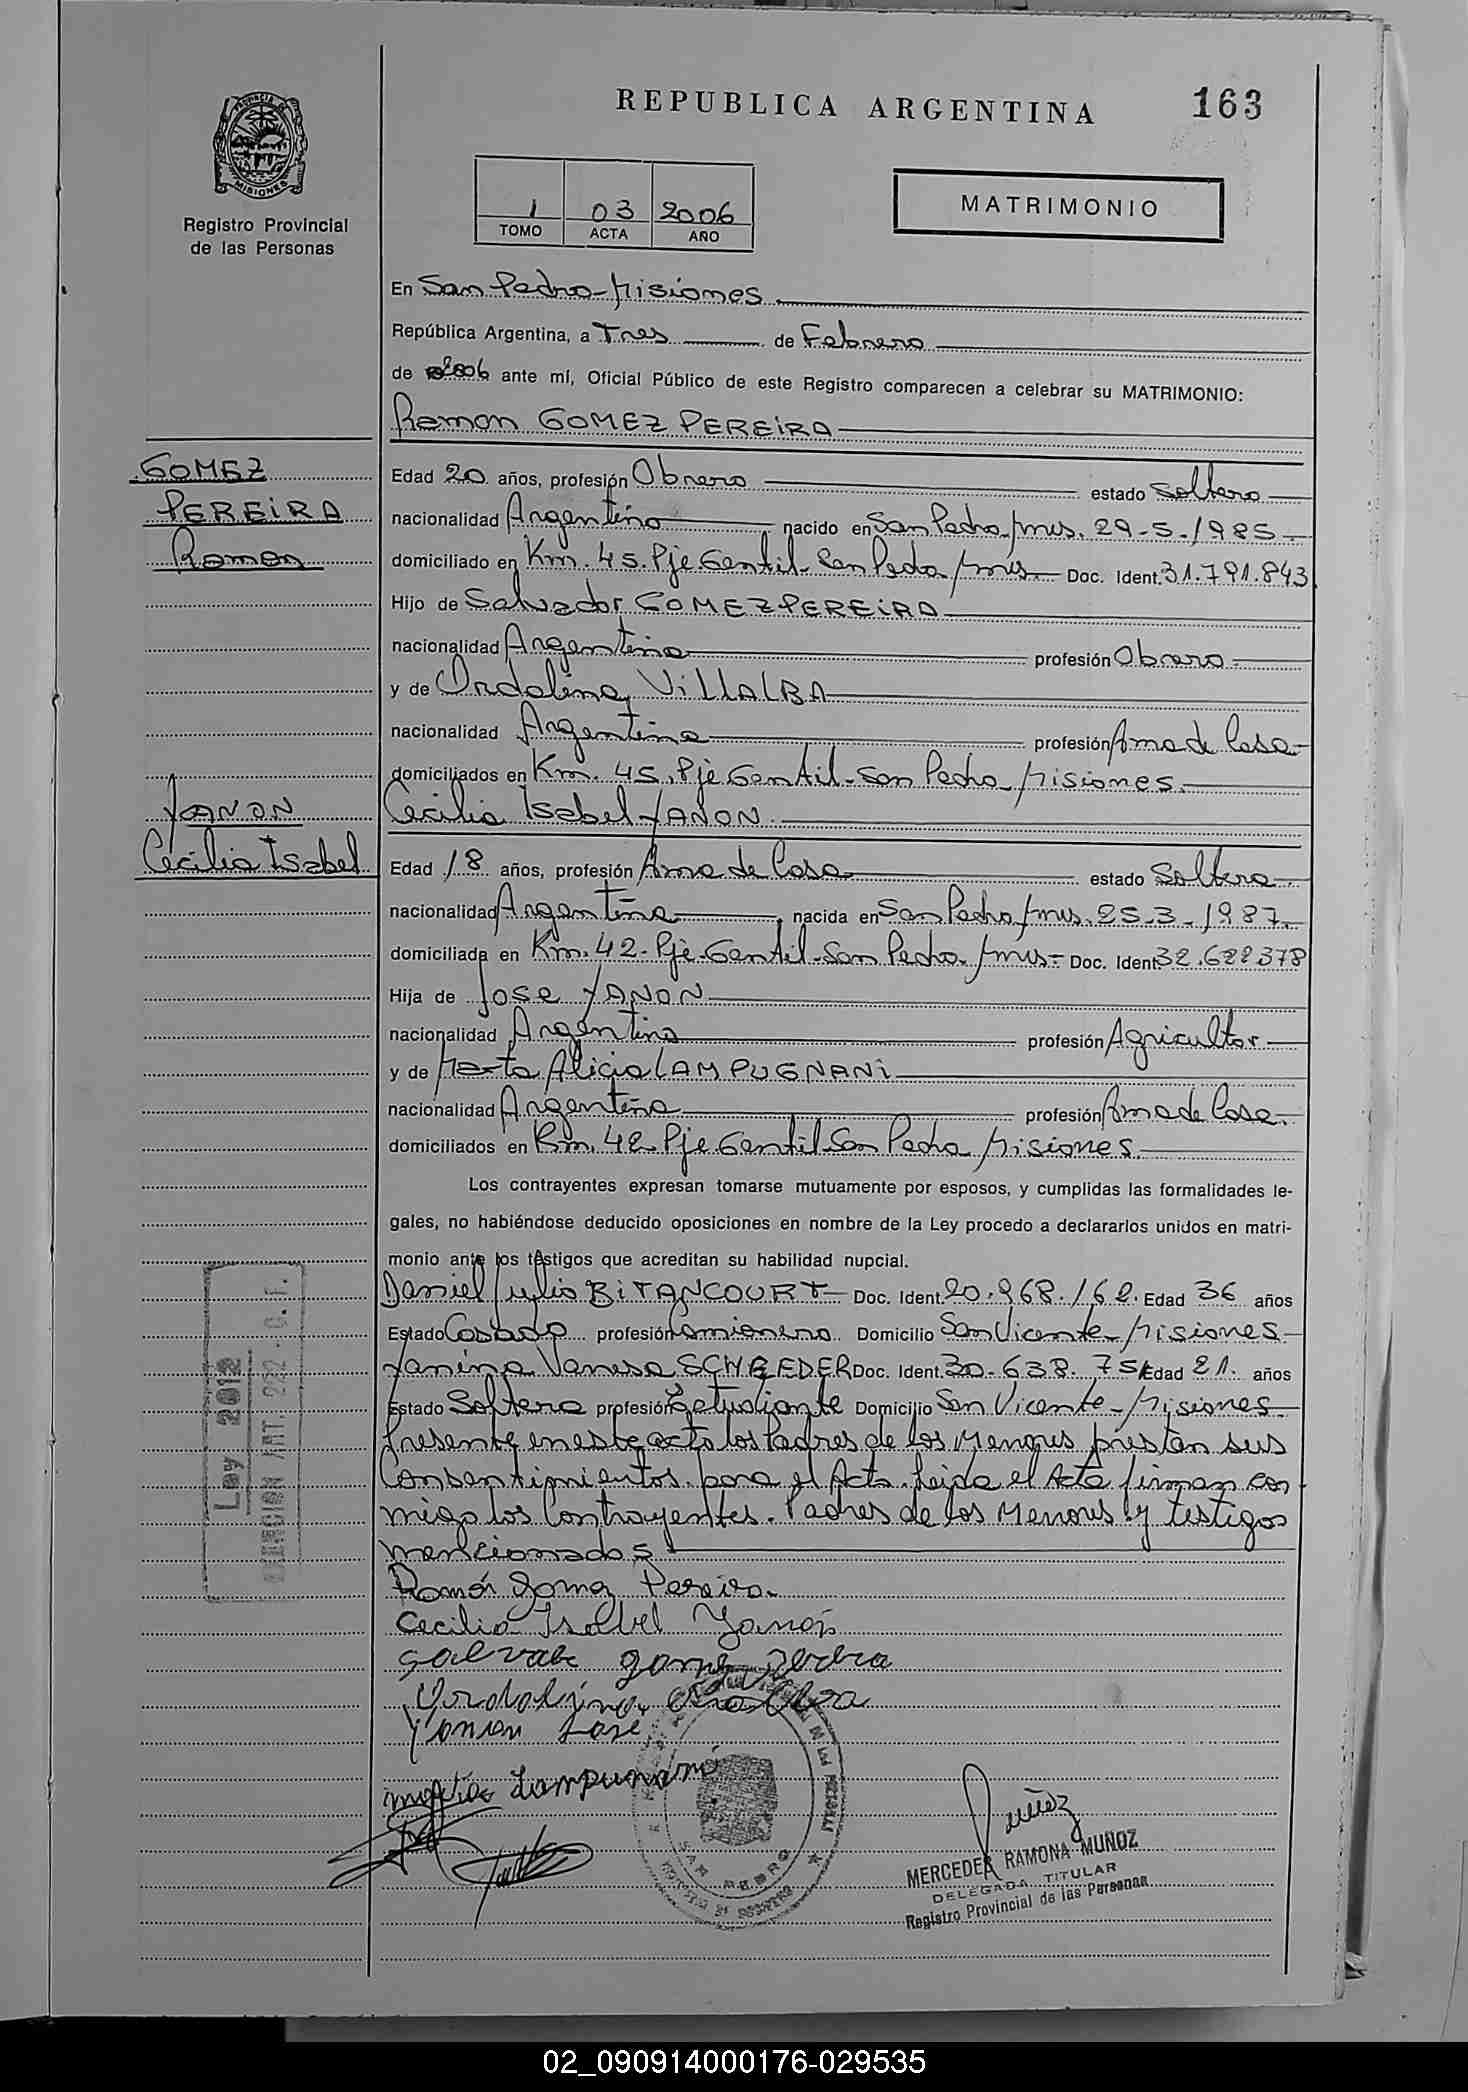 REPUBLICA ARGENTINA
163
PROVINCIA DE MISIONES
Registro Provincial
de las Personas
1 03 2006
TOMO ACTA AÑO
MATRIMONIO
En San Pedro-Misiones
República Argentina, a Tres de Febrero
de 2006 ante mí, Oficial Público de este Registro comparecen a celebrar su MATRIMONIO:
Ramon GOMEZ PEREIRA
GOMEZ
PEREIRA
Ramon
Edad 20 años, profesión Obrero estado Soltero
nacionalidad Argentino nacido en San Pedro-Mnes. 29-5-1985
domiciliado en Km. 45. Pje Gentil-San Pedro Mnes Doc. Ident. 31.791.843
Hijo de Salvador GOMEZ PEREIRA
nacionalidad Argentino profesión Obrero
y de Ordalina VILLALBA
nacionalidad Argentina profesión Ama de Casa
domiciliados en Km. 45, Pje Gentil-San Pedro Misiones
YANON
Cecilia Isabel
Cecilia Isabel YANON
Edad 18 años, profesión Ama de Casa estado Soltera
nacionalidad Argentina nacida en San Pedro Mnes. 25-3-1987
domiciliada en Km. 42-Pje-Gentil-San Pedro. Mnes- Doc. Ident. 32.622378
Hija de Jose YANON
nacionalidad Argentino profesión Agricultor
y de Marta Alicia LAMPUGNANI
nacionalidad Argentina profesión Ama de Casa
domiciliados en Km. 42 Pje Gentil San Pedro Misiones
Los contrayentes expresan tomarse mutuamente por esposos, y cumplidas las formalidades le-
gales, no habiéndose deducido oposiciones en nombre de la Ley procedo a declararlos unidos en matri-
monio ante los testigos que acreditan su habilidad nupcial.
Daniel Julio BITANCOURT Doc. Ident. 20.968.162. Edad 36 años
Estado Casado profesión Camionero Domicilio San Vicente-Misiones
Yanina Vanesa Doc. Ident. 30.638.751 Edad 21 años
Estado Soltera profesión Estudiante Domicilio San Vicente-Misiones
Presente en este acto los Padres de los Menores prestan sus
Consentimientos para el Acto. Leida el Acta firman con
migo los Contrayentes. Padres de los Menores y testigos
mencionados
Ley 2012
MAT. 222
Ramón Gomez Pereira
Cecilia Isabel Yanon
gomez
Yanon Jose
Lampugnani
SAN PEDRO
Muñoz
MERCEDES RAMONA MUÑOZ
DELEGADA TITULAR
Registro Provincial de las Personas
02_090914000176-029535